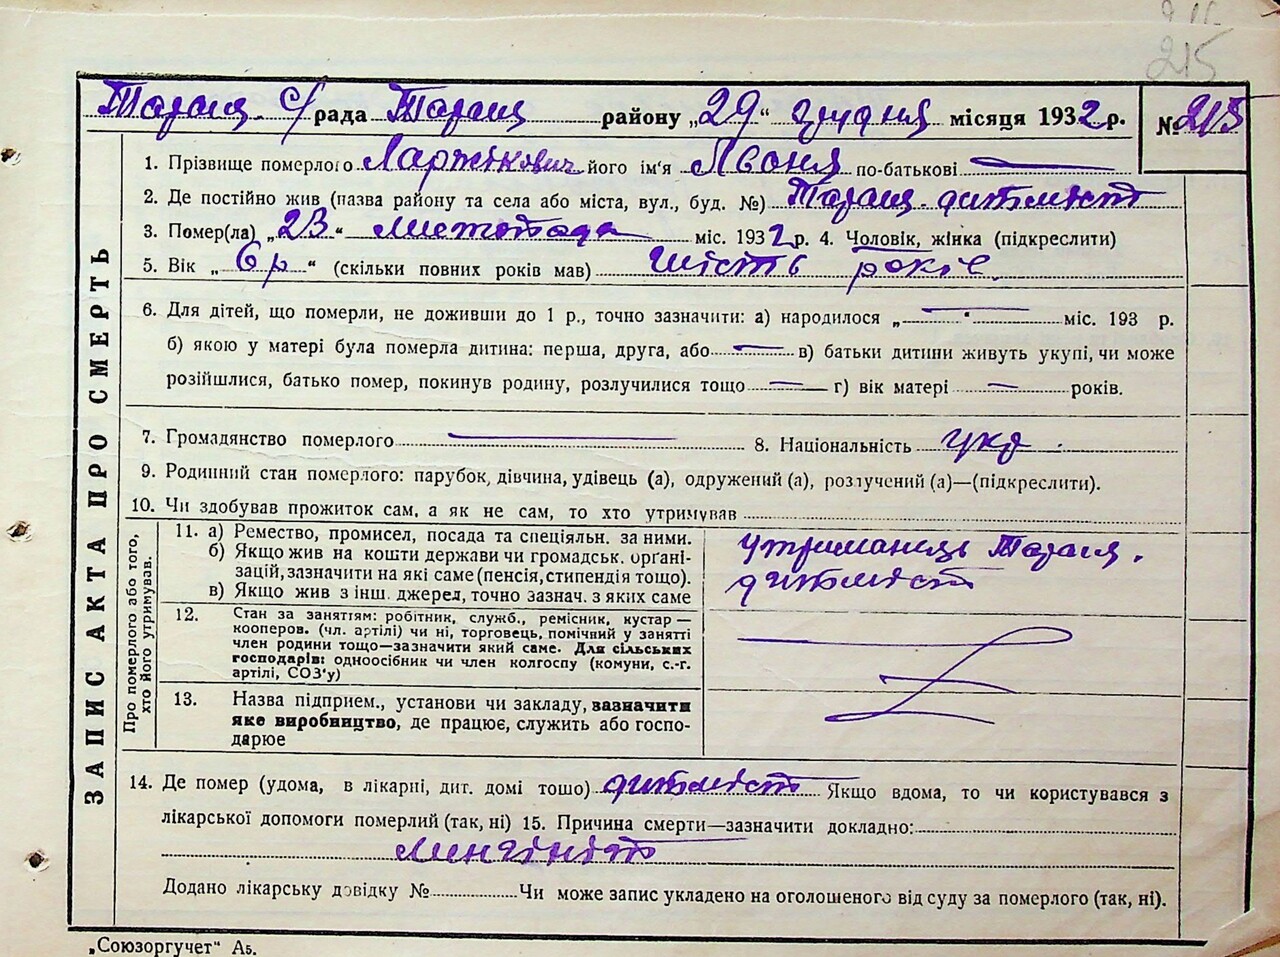 215
Таращ. с/рада Таращ району „29“ грудня місяця 1932 р. № 215
ЗАПИС АКТА ПРО СМЕРТЬ
1. Прізвище померлого його ім'я по-батькові —
2. Де постійно жив (назва району та села або міста, вул., буд. №) Таращ. дитмісто
3. Помер(ла) „23“ листопада міс. 1932 р. 4. Чоловік, жінка (підкреслити)
5. Вік „6 р.“ (скільки повних років мав) шість років
6. Для дітей, що померли, не доживши до 1 р., точно зазначити: а) народилося „—“ міс. 193 р.
б) якою у матері була померла дитина: перша, друга, або — в) батьки дитини живуть укупі, чи може
розійшлися, батько помер, покинув родину, розлучилися тощо — г) вік матері — років.
7. Громадянство померлого — 8. Національність укр.
9. Родинний стан померлого: парубок, дівчина, удівець (а), одружений (а), розлучений (а)—(підкреслити).
10. Чи здобував прожиток сам, а як не сам, то хто утримував
Про померлого або того, хто його утримував.
11. а) Ремество, промисел, посада та спеціяльн. за ними.
б) Якщо жив на кошти держави чи громадськ. органі-
зацій, зазначити на які саме (пенсія, стипендія тощо).
в) Якщо жив з інш. джерел, точно зазнач. з яких саме
утриманець Таращ.
дитмісто
12. Стан за заняттям: робітник, служб., ремісник, кустар —
кооперов. (чл. артілі) чи ні, торговець, помічний у занятті
член родини тощо—зазначити який саме. Для сільських
господарів: одноосібник чи член колгоспу (комуни, с.-г.
артілі, СОЗ'у)
13. Назва підприєм., установи чи закладу, зазначити
яке виробництво, де працює, служить або госпо-
дарює
14. Де помер (удома, в лікарні, дит. домі тошо) дитмісто Якщо вдома, то чи користувався з
лікарської допомоги померлий (так, ні) 15. Причина смерти—зазначити докладно:
Додано лікарську довідку № Чи може запис укладено на оголошеного від суду за померлого (так, ні).
„Союзоргучет“ А5.